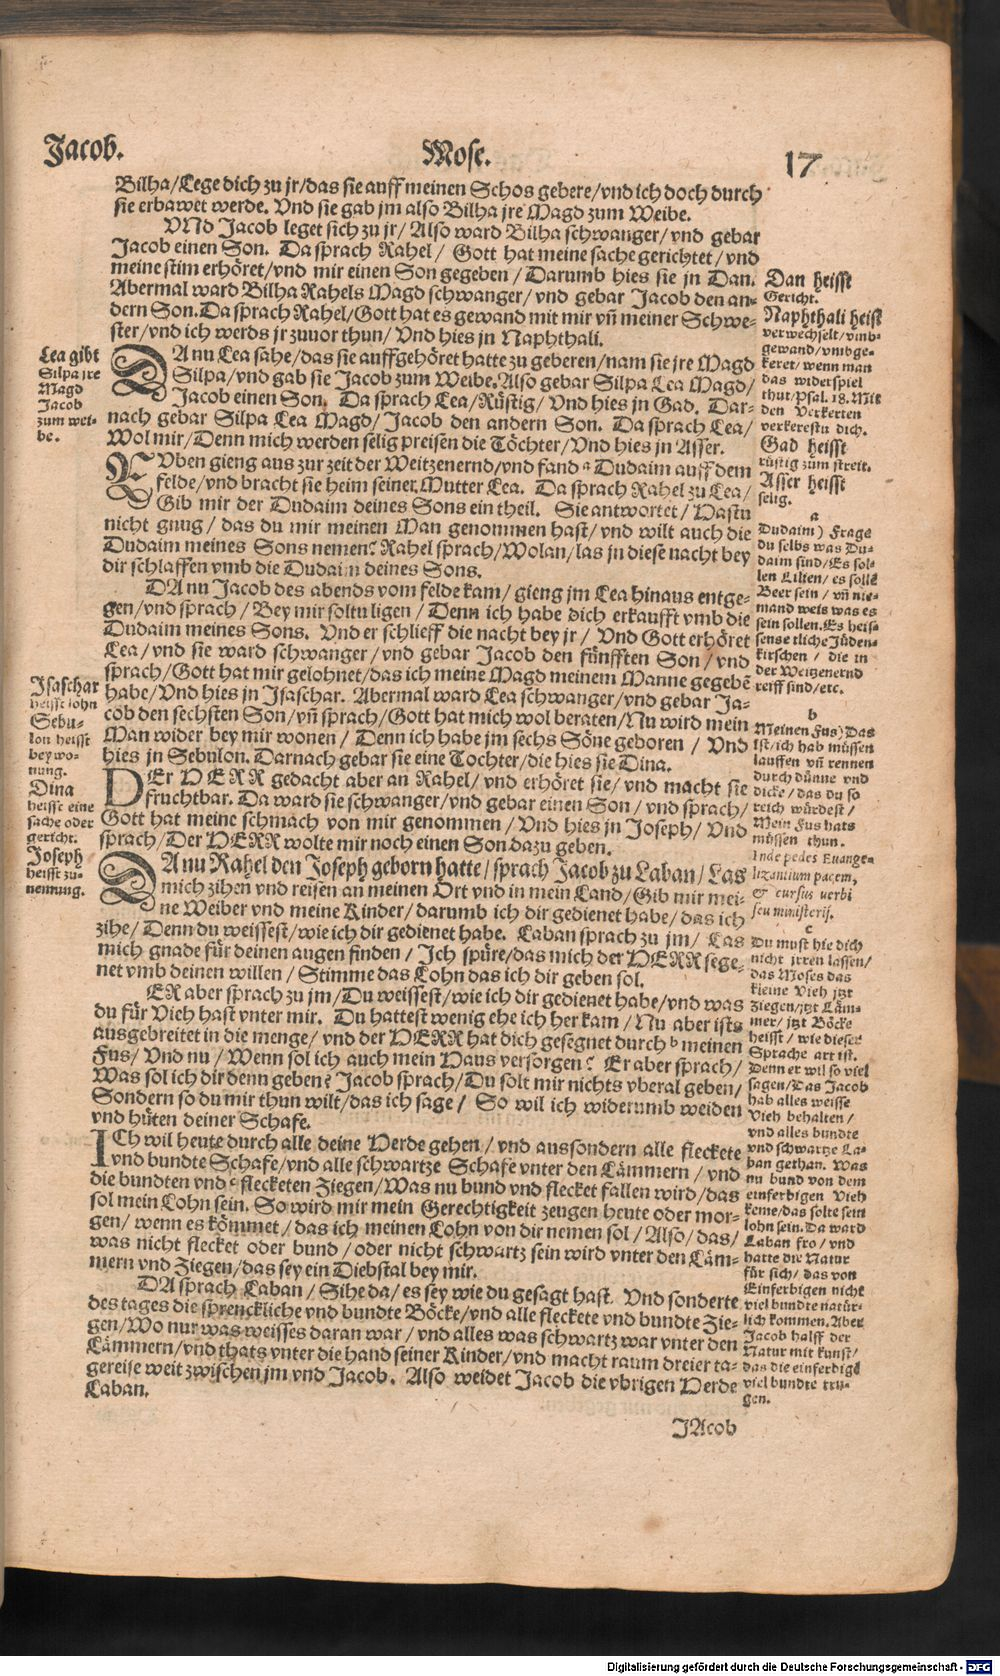 Jacob.
Mose.
17
Bilha/Lege dich zu jr/das sie auff meinen Schos gebere/vnd ich doch durch
sie erbawet werde. Vnd sie gab jm also Bilha jre Magd zum Weibe.
VNd Jacob leget sich zu jr/ Also ward Bilha schwanger/ vnd gebar
Jacob einen Son. Da sprach Rahel/ Gott hat meine sache gerichtet/ vnd
meine stim erhöret/vnd mir einen Son gegeben/ Darumb hies sie jn Dan.
Abermal ward Bilha Rahels Magd schwanger/ vnd gebar Jacob den an-
dern Son. Da sprach Rahel/Gott hat es gewand mit mir vñ meiner Schwe-
ster/vnd ich werds jr zuuor thun/ Vnd hies jn Naphthali.
DA nu Lea sahe/das sie auffgehöret hatte zu geberen/nam sie jre Magd
Silpa/vnd gab sie Jacob zum Weibe. Also gebar Silpa Lea Magd/
Jacob einen Son. Da sprach Lea/Rüstig/ Vnd hies jn Gad. Dar-
nach gebar Silpa Lea Magd/ Jacob den andern Son. Da sprach Lea/
Wol mir/Denn mich werden selig preisen die Töchter/Vnd hies jn Asser.
RVben gieng aus zur zeit der Weitzenernd/vnd fand a Dudaim auff dem
felde/vnd bracht sie heim seiner Mutter Lea. Da sprach Rahel zu Lea/
Gib mir der Dudaim deines Sons ein theil. Sie antwortet/ Hastu
nicht gnug/ das du mir meinen Man genommen hast/ vnd wilt auch die
Dudaim meines Sons nemen? Rahel sprach/Wolan/las jn diese nacht bey
dir schlaffen vmb die Dudaim deines Sons.
DA nu Jacob des abends vom felde kam/ gieng jm Lea hinaus entge-
gen/vnd sprach/ Bey mir soltu ligen/ Denn ich habe dich erkaufft vmb die
Dudaim meines Sons. Vnd er schlieff die nacht bey jr/ Vnd Gott erhöret
Lea/vnd sie ward schwanger/vnd gebar Jacob den fünfften Son/vnd
sprach/Gott hat mir gelohnet/das ich meine Magd meinem Manne gegebẽ
habe/Vnd hies jn Isaschar. Abermal ward Lea schwanger/vnd gebar Ja-
cob den sechsten Son/vñ sprach/Gott hat mich wol beraten/Nu wird mein
Man wider bey mir wonen/ Denn ich habe jm sechs Söne geboren/ Vnd
hies jn Sebulon. Darnach gebar sie eine Tochter/die hies sie Dina.
DEr HERR gedacht aber an Rahel/ vnd erhöret sie/ vnd macht sie
fruchtbar. Da ward sie schwanger/vnd gebar einen Son/ vnd sprach/
Gott hat meine schmach von mir genommen/ Vnd hies jn Joseph/ Vnd
sprach/Der HERR wolte mir noch einen Son dazu geben.
DA nu Rahel den Joseph geborn hatte/sprach Jacob zu Laban/Las
mich zihen vnd reisen an meinen Ort vnd in mein Land/Gib mir mei-
ne Weiber vnd meine Kinder/darumb ich dir gedienet habe/das ich
zihe/Denn du weissest/wie ich dir gedienet habe. Laban sprach zu jm/ Las
mich gnade für deinen augen finden/ Ich spüre/das mich der HERR sege-
net vmb deinen willen/ Stimme das Lohn das ich dir geben sol.
ER aber sprach zu jm/Du weissest/wie ich dir gedienet habe/vnd was
du für Vieh hast vnter mir. Du hattest wenig ehe ich her kam/Nu aber ists
ausgebreitet in die menge/ vnd der HERR hat dich gesegnet durch b meinen
Fus/Vnd nu/Wenn sol ich auch mein Haus versorgen? Er aber sprach/
Was sol ich dir denn geben? Jacob sprach/Du solt mir nichts vberal geben/
Sondern so du mir thun wilt/das ich sage/ So wil ich widerumb weiden
vnd hüten deiner Schafe.
ICh wil heute durch alle deine Herde gehen/ vnd aussondern alle fleckete
vnd bundte Schafe/vnd alle schwartze Schafe vnter den Lämmern/ vnd
die bundten vnd c flecketen Ziegen/Was nu bund vnd flecket fallen wird/das
sol mein Lohn sein. So wird mir mein Gerechtigkeit zeugen heute oder mor-
gen/ wenn es kömmet/das ich meinen Lohn von dir nemen sol/Also/das/
was nicht flecket oder bund/oder nicht schwartz sein wird vnter den Läm-
mern vnd Ziegen/das sey ein Diebstal bey mir.
DA sprach Laban/ Sihe da/es sey wie du gesagt hast. Vnd sonderte
des tages die sprenckliche vnd bundte Böcke/vnd alle fleckete vnd bundte Zie-
gen/Wo nur was weisses daran war/ vnd alles was schwartz war vnter den
Lämmern/vnd thats vnter die hand seiner Kinder/vnd macht raum dreier ta-
gereise weit zwischen jm vnd Jacob. Also weidet Jacob die vbrigen Herde
Laban.
JAcob
Lea gibt
Silpa jre
Magd
Jacob
zum wei-
be.
Isaschar
heisst lohn
Sebu-
lon heisst
beywo-
nung.
Dina
heisst eine
sache oder
gericht.
Joseph
heisst zu-
nemung.
Dan heisst
Gericht.
Naphthali heist
verwechselt/vmb-
gewand/vmbge-
keret/wenn man
das widerspiel
thut/Psal. 18. Mit
den Verkerten
verkerestu dich.
Gad heisst
rüstig zum streit.
Asser heisst
selig.
a
Dudaim) Frage
du selbs was Du-
daim sind/Es sol-
len Lilien/es sollẽ
Beer sein/ vñ nie-
mand weis was es
sein sollen. Es heis-
sens etliche Jüden-
kirschen/ die in
der Weitzenernd
reiff sind/etc.
b
Meinen Fus) Das
ist/ich hab müssen
lauffen vñ rennen
durch dünne vnd
dicke/das du so
reich würdest/
Mein Fus hats
müssen thun.
Inde pedes Euange-
lizantium pacem,
& cursus verbi
seu ministerij.
c
Du must hie dich
nicht jrren lassen/
das Moses das
kleine Vieh jtzt
Ziegen/jtzt Läm-
mer/ jtzt Böcke
heisst/ wie dieser
Sprache art ist.
Denn er wil so viel
sagen/Das Jacob
hab alles weisse
Vieh behalten/
vnd alles bundte
vnd schwartze La-
ban gethan. Was
nu bund von dem
einferbigen Vieh
keme/das solte sein
lohn sein. Da ward
Laban fro/ vnd
hatte die Natur
für sich/ das von
Einferbigen nicht
viel bundte natür-
lich kommen. Aber
Jacob halff der
Natur mit kunst/
das die einferbigẽ
viel bundte tru-
gen.
Digitalisierung gefördert durch die Deutsche Forschungsgemeinschaft - DFG